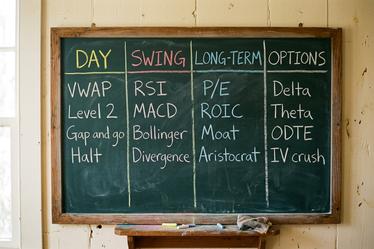 DAY SWING LONG-TERM OPTIONS
VWAP RSI P/E Delta
Level 2 MACD ROIC Theta
Gap and go Bollinger Moat ODTE
Halt Divergence Aristocrat IV crush